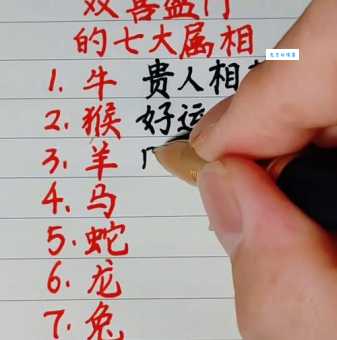 双喜盈门
的七大属相
1. 牛 贵人相
2. 猴 好运
3. 羊
4. 马
5. 蛇
6. 龙
7. 兔